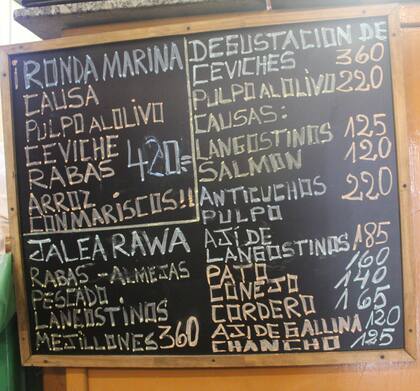 ¡RONDA MARINA
CAUSA
PULPO AL OLIVO
CEVICHE
RABAS 420=
ARROZ
CON MARISCOS!!
JALEA RAWA
RABAS - ALMEJAS
PESCADO
LANGOSTINOS
MEJILLONES 360
DEGUSTACION DE
CEVICHES 360
PULPO AL OLIVO 220
CAUSAS:
LANGOSTINOS 125
SALMON 120
ANTICUCHOS 220
PULPO
AJÍ DE 185
LANGOSTINOS
PATO 160
CONEJO 140
CORDERO 165
AJI DE GALLINA 120
CHANCHO 125